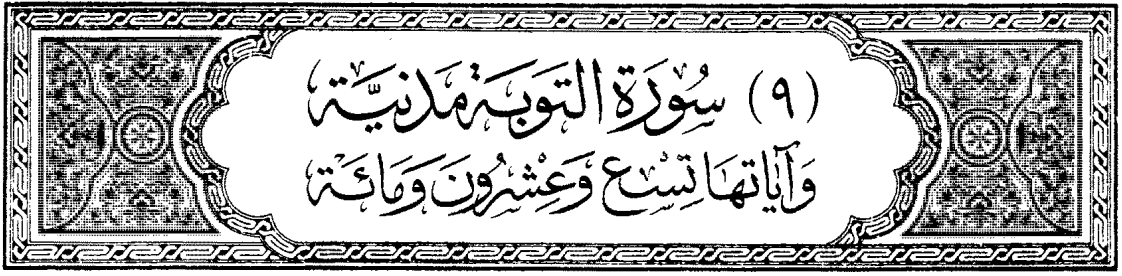 (٩) سُورَة التوبَة مَدَنيَّة
وَآيَاتهَا تِسْع وَعِشْرُونَ وَمَائَة